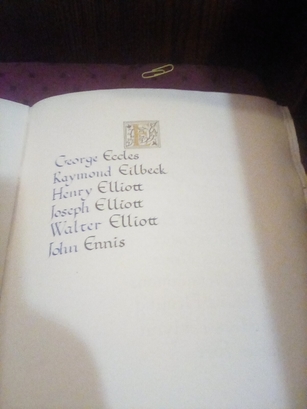 E
George Eccles
Raymond Eilbeck
Henry Elliott
Joseph Elliott
Walter Elliott
John Ennis